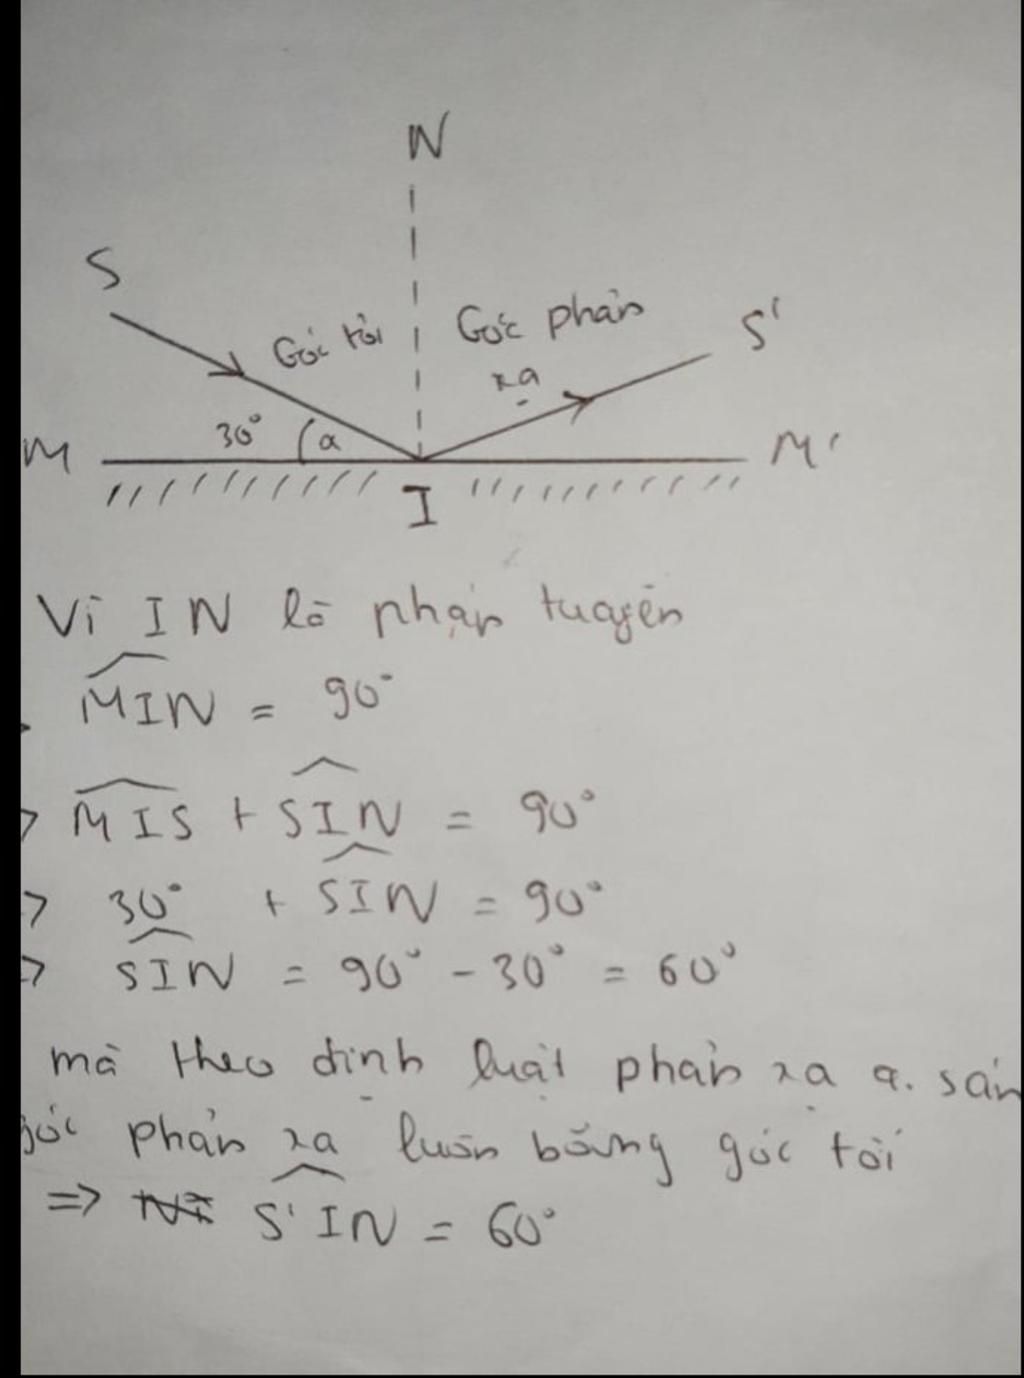 N
S
Góc tới
Góc phản
xạ
S'
30°
α
M
M'
I
Vì IN là pháp tuyến
MIN = 90°
MIS + SIN = 90°
=> 30° + SIN = 90°
=> SIN = 90° - 30° = 60°
mà theo định luật phản xạ a. sán
góc phản xạ luôn bằng góc tới
=> S'IN = 60°